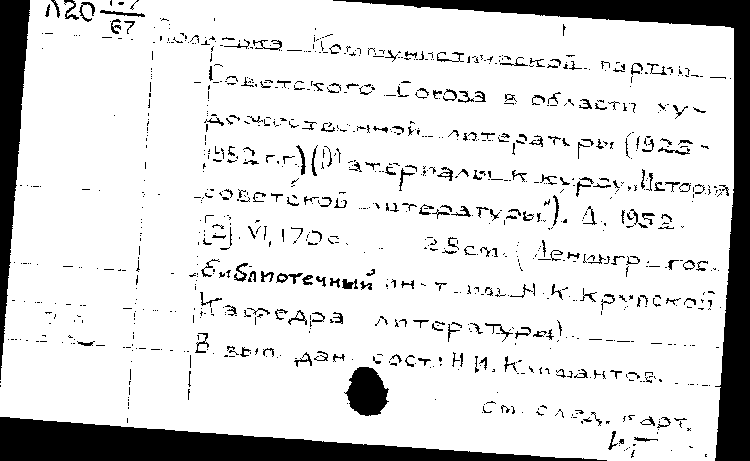 Л20 67
Политика Коммунистической партии
Советского Союза в области ху-
дожественной литературы (1925-
1952 г.г.) (Материалы к курсу „История
советской литературы"). Л. 1952.
[2]. VI, 170 с. 28 см. (Ленингр. гос.
библиотечный ин-т им. Н.К. Крупской
Кафедра литературы)
В вып. дан. сост: Н.И.
см. след. карт.